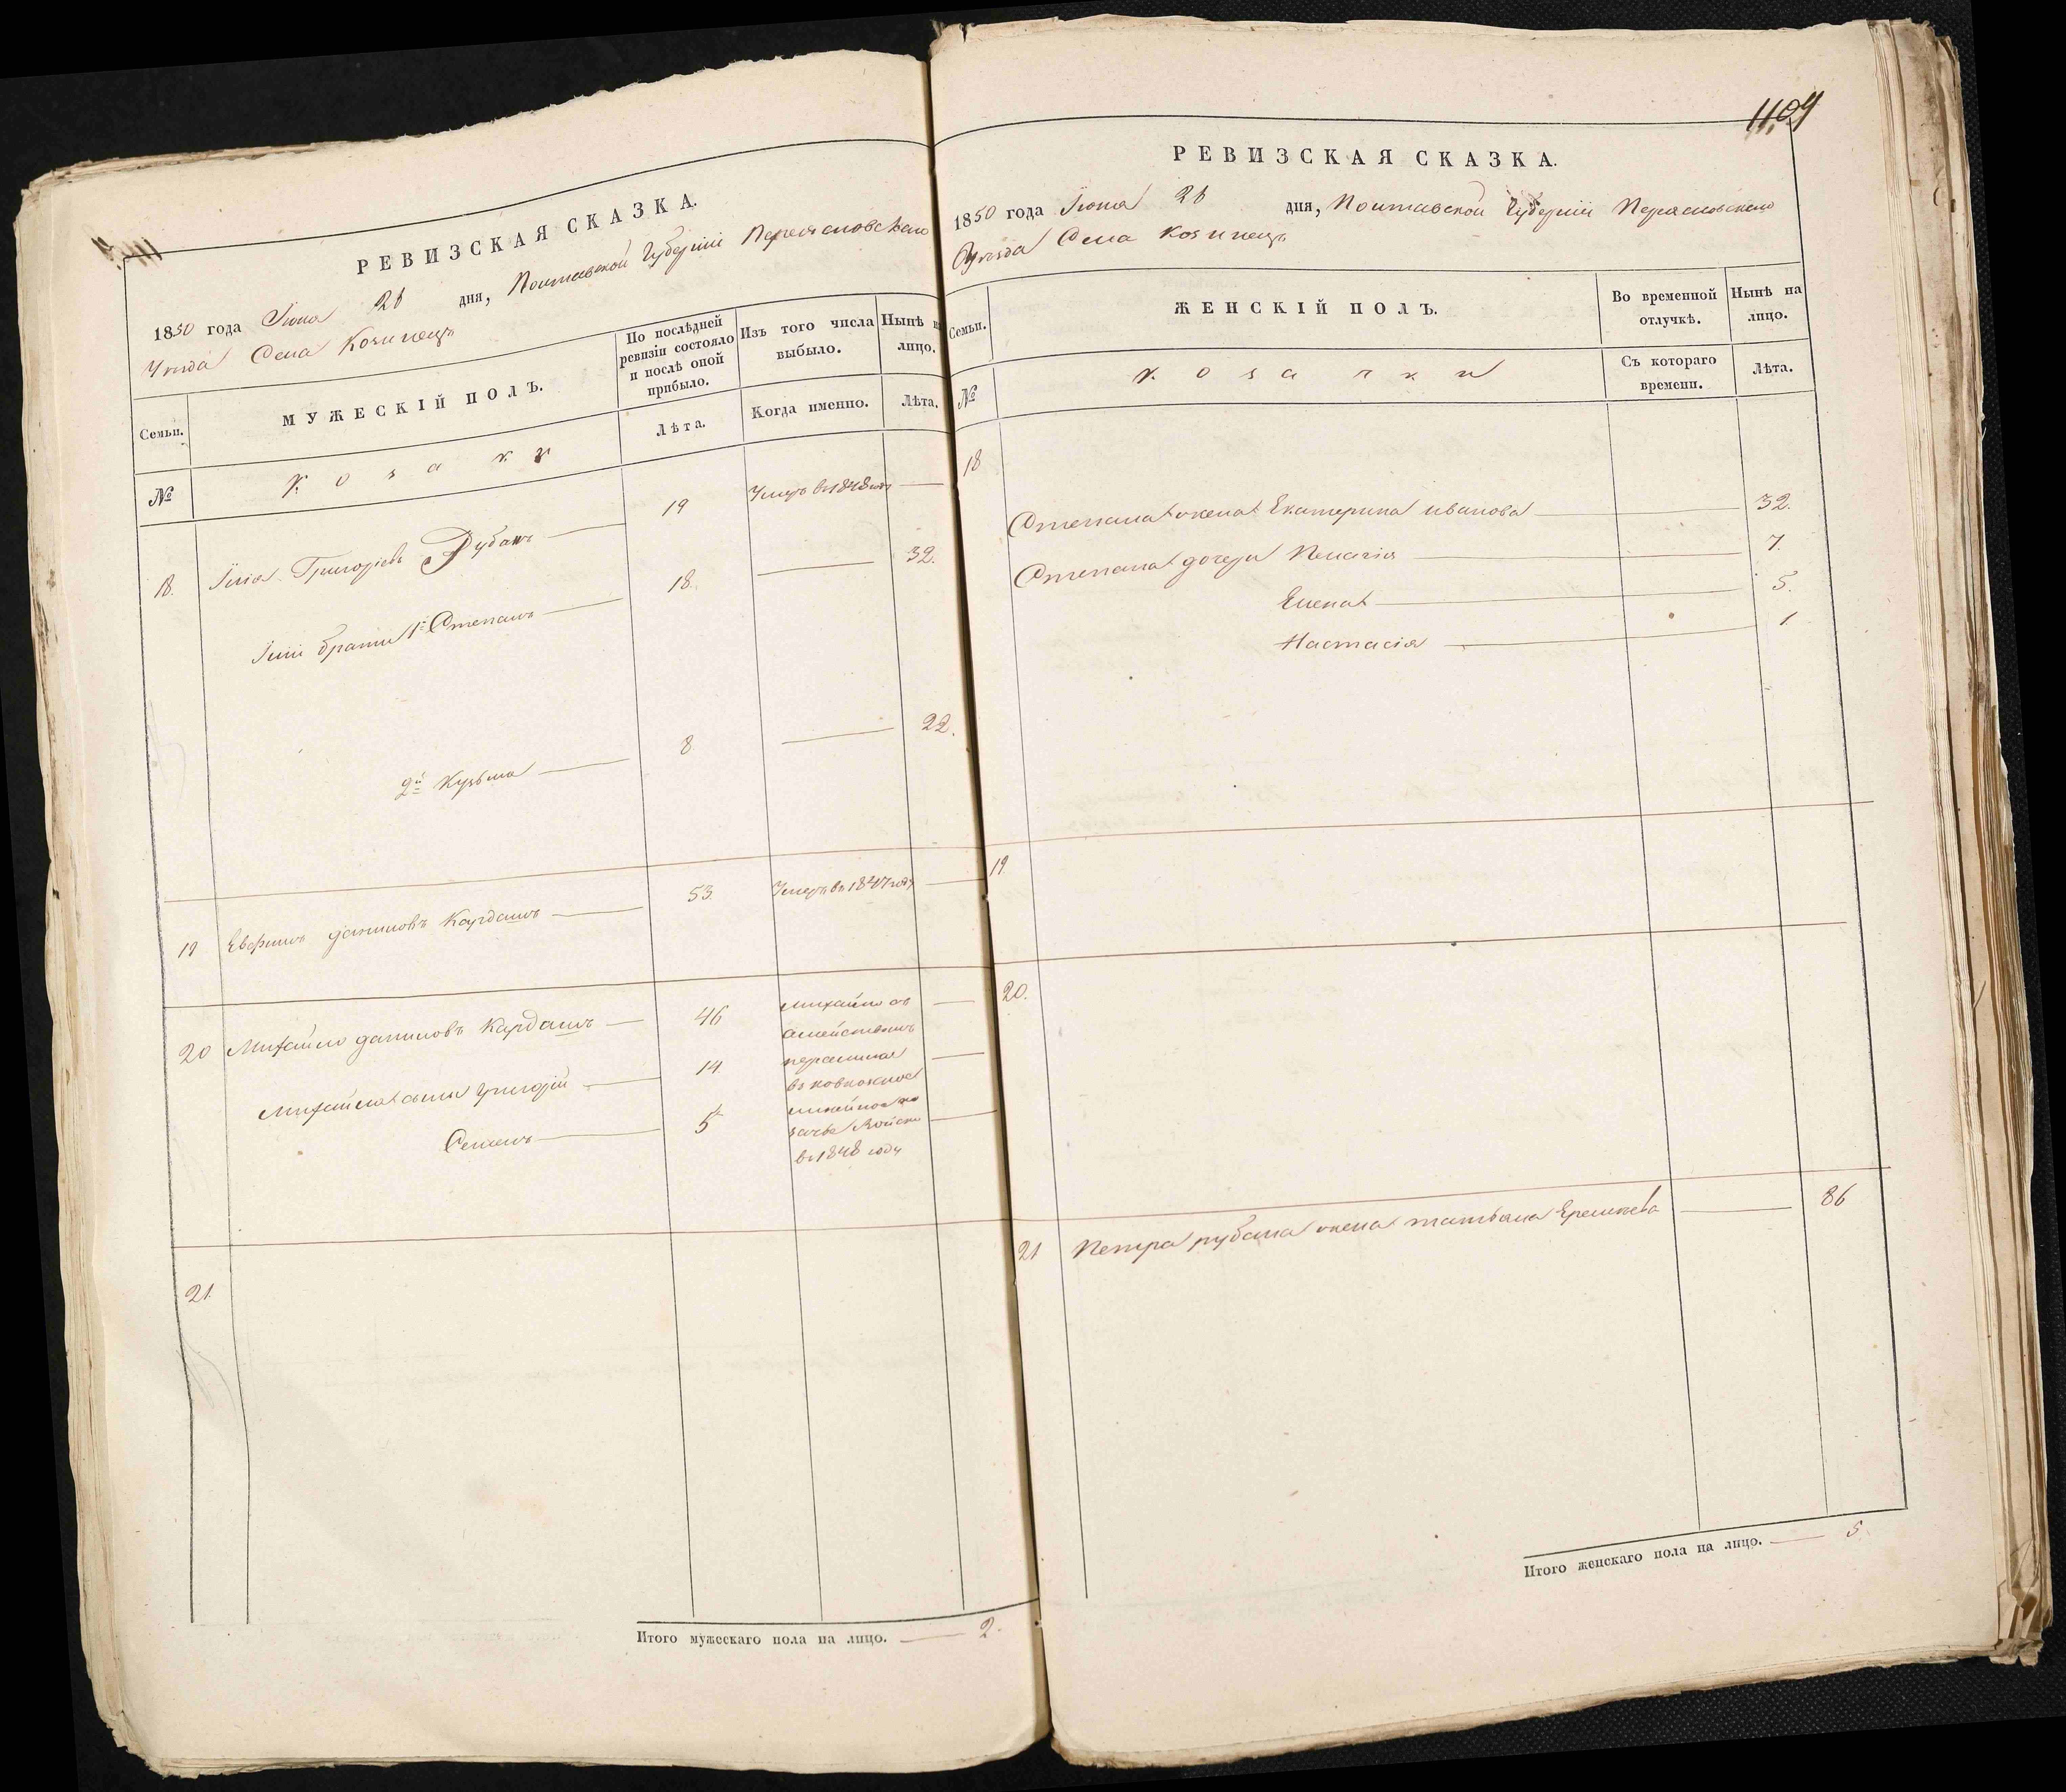 РЕВИЗСКАЯ СКАЗКА.
1850 года Іюня 28 дня, Полтавской Губерніи Переяславскаго
Уезда Села Козинецъ
Семьи.
МУЖЕСКІЙ ПОЛЪ.
По послѣдней ревизіи состояло и послѣ оной прибыло.
Изъ того числа выбыло.
Нынѣ на лицо.
№
Козаки
Лѣта.
Когда именно.
Лѣта.
18. Илія Григоріевъ Рубанъ 19 Умеръ въ 1848 году
Иліи братья 1й Степанъ 18. 32.
2й Кузьма 8 22.
19 Евфимъ даниловъ Кардашъ 53. Умеръ въ 1847 году
20 Михайло даниловъ Кардашъ 46 Михайло съ
семействомъ
Михайла сыны григорій 14. перечисленъ
въ кавказкое
линейное ка
Семенъ 5 зачье Войско
въ 1848 году
21.
Итого мужескаго пола на лицо. 2.
1104
РЕВИЗСКАЯ СКАЗКА.
1850 года Іюня 28 дня, Полтавской Губерніи Переясловскаго
Уезда Села Козинецъ
Семьи.
ЖЕНСКІЙ ПОЛЪ.
Во временной отлучкѣ.
Нынѣ на лицо.
№
Козачки
Съ котораго времени.
Лѣта.
18
Степана жена Екатерина иванова 32.
Степана дочери Пелагія 7.
Елена 5.
Настасія 1
19
20.
21 Петра рубана жена татьяна Еремиева 86
Итого женскаго пола на лицо. 5.